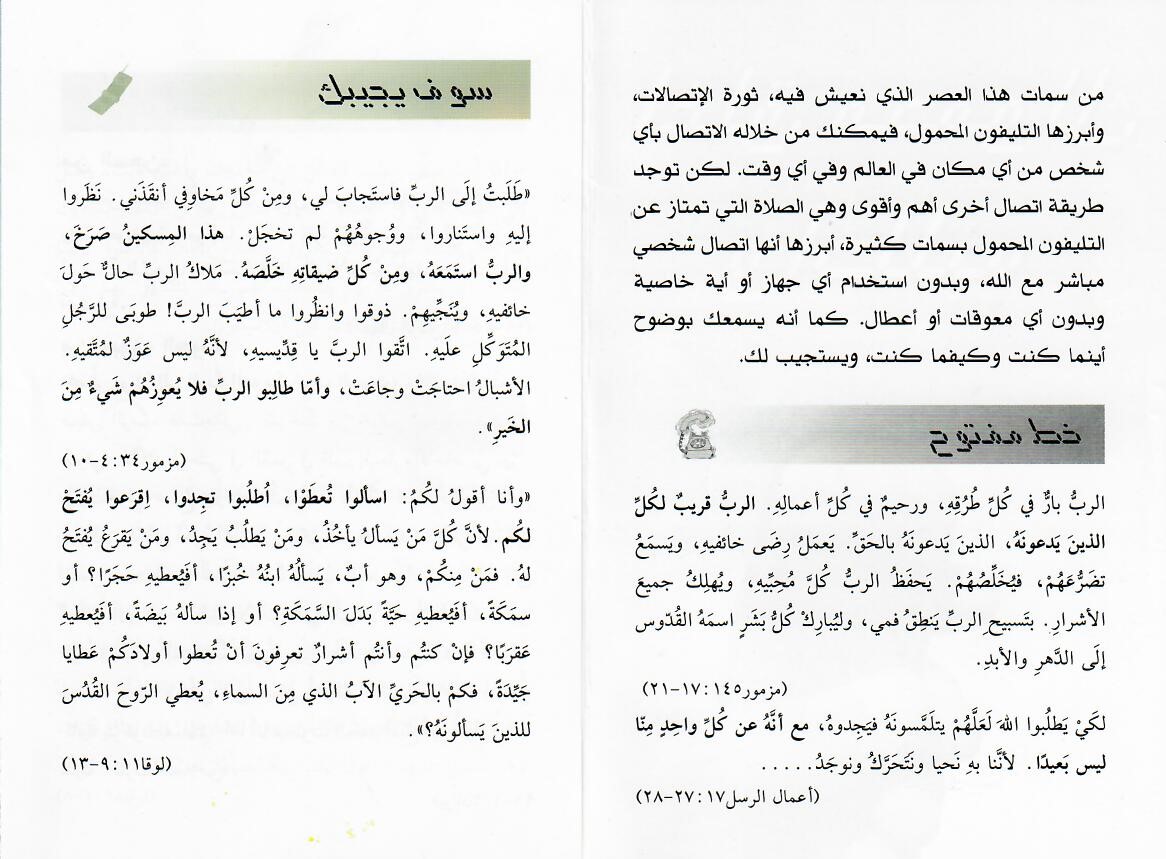 من سمات هذا العصر الذي نعيش فيه، ثورة الإتصالات،
وأبرزها التليفون المحمول، فيمكنك من خلاله الاتصال بأي
شخص من أي مكان في العالم وفي أي وقت. لكن توجد
طريقة اتصال أخرى أهم وأقوى وهي الصلاة التي تمتاز عن
التليفون المحمول بسمات كثيرة، أبرزها أنها اتصال شخصي
مباشر مع الله، وبدون استخدام أي جهاز أو أية خاصية
وبدون أي معوقات أو أعطال. كما أنه يسمعك بوضوح
أينما كنت وكيفما كنت، ويستجيب لك.
خط مفتوح
الربُّ بارٌّ في كُلِّ طُرُقِهِ، ورحيمٌ في كُلِّ أعمالِهِ. الربُّ قريبٌ لكُلِّ
الذينَ يَدعونَهُ، الذينَ يَدعونَهُ بالحَقِّ. يَعمَلُ رِضَى خائفيهِ، ويَسمَعُ
تضَرُّعَهُمْ، فيُخَلِّصُهُمْ. يَحفَظُ الربُّ كُلَّ مُحِبِّيهِ، ويُهلِكُ جميعَ
الأشرارِ. بتَسبيحِ الربِّ يَنطِقُ فمي، وليُبارِكْ كُلُّ بَشَرٍ اسمَهُ القُدّوس
إلَى الدَّهرِ والأبدِ.
(مزمور١٤٥: ١٧-٢١)
لكَيْ يَطلُبوا اللهَ لَعَلَّهُمْ يتلَمَّسونَهُ فيَجِدوهُ، مع أنَّهُ عن كُلِّ واحِدٍ مِنّا
ليس بَعيدًا. لأنَّنا بهِ نَحيا ونَتَحَرَّكُ ونوجَدُ.....
(أعمال الرسل١٧: ٢٧-٢٨)
سوف يجيبك
«طَلَبتُ إلَى الربِّ فاستَجابَ لي، ومِنْ كُلِّ مَخاوِفي أنقَذَني. نَظَروا
إليهِ واستَناروا، ووُجوهُهُمْ لم تخجَلْ. هذا المِسكينُ صَرَخَ،
والربُّ استَمَعَهُ، ومِنْ كُلِّ ضيقاتِهِ خَلَّصَهُ. مَلاكُ الربِّ حالٌّ حَولَ
خائفيهِ، ويُنَجِّيهِمْ. ذوقوا وانظُروا ما أطيَبَ الربَّ! طوبَى للرَّجُلِ
المُتَوَكِّلِ علَيهِ. اتَّقوا الربَّ يا قِدِّيسيهِ، لأنَّهُ ليس عَوَزٌ لمُتَّقيهِ.
الأشبالُ احتاجَتْ وجاعَتْ، وأمّا طالِبو الربِّ فلا يُعوِزُهُمْ شَيءٌ مِنَ
الخَيرِ».
(مزمور٣٤: ٤-١٠)
«وأنا أقولُ لكُمُ: اسألوا تُعطَوْا، اُطلُبوا تجِدوا، اِقرَعوا يُفتَحْ
لكُم. لأنَّ كُلَّ مَنْ يَسألُ يأخُذُ، ومَنْ يَطلُبُ يَجِدُ، ومَنْ يَقرَعُ يُفتَحُ
لهُ. فمَنْ مِنكُمْ، وهو أبٌ، يَسألُهُ ابنُهُ خُبزًا، أفَيُعطيهِ حَجَرًا؟ أو
سمَكَةً، أفَيُعطيهِ حَيَّةً بَدَلَ السَّمَكَةِ؟ أو إذا سألهُ بَيضَةً، أفَيُعطيهِ
عَقرَبًا؟ فإنْ كنتُم وأنتُم أشرارٌ تعرِفونَ أنْ تُعطوا أولادَكُمْ عَطايا
جَيِّدَةً، فكمْ بالحَريِّ الآبُ الذي مِنَ السماءِ، يُعطي الرّوحَ القُدُسَ
للذينَ يَسألونَهُ؟».
(لوقا١١: ٩-١٣)